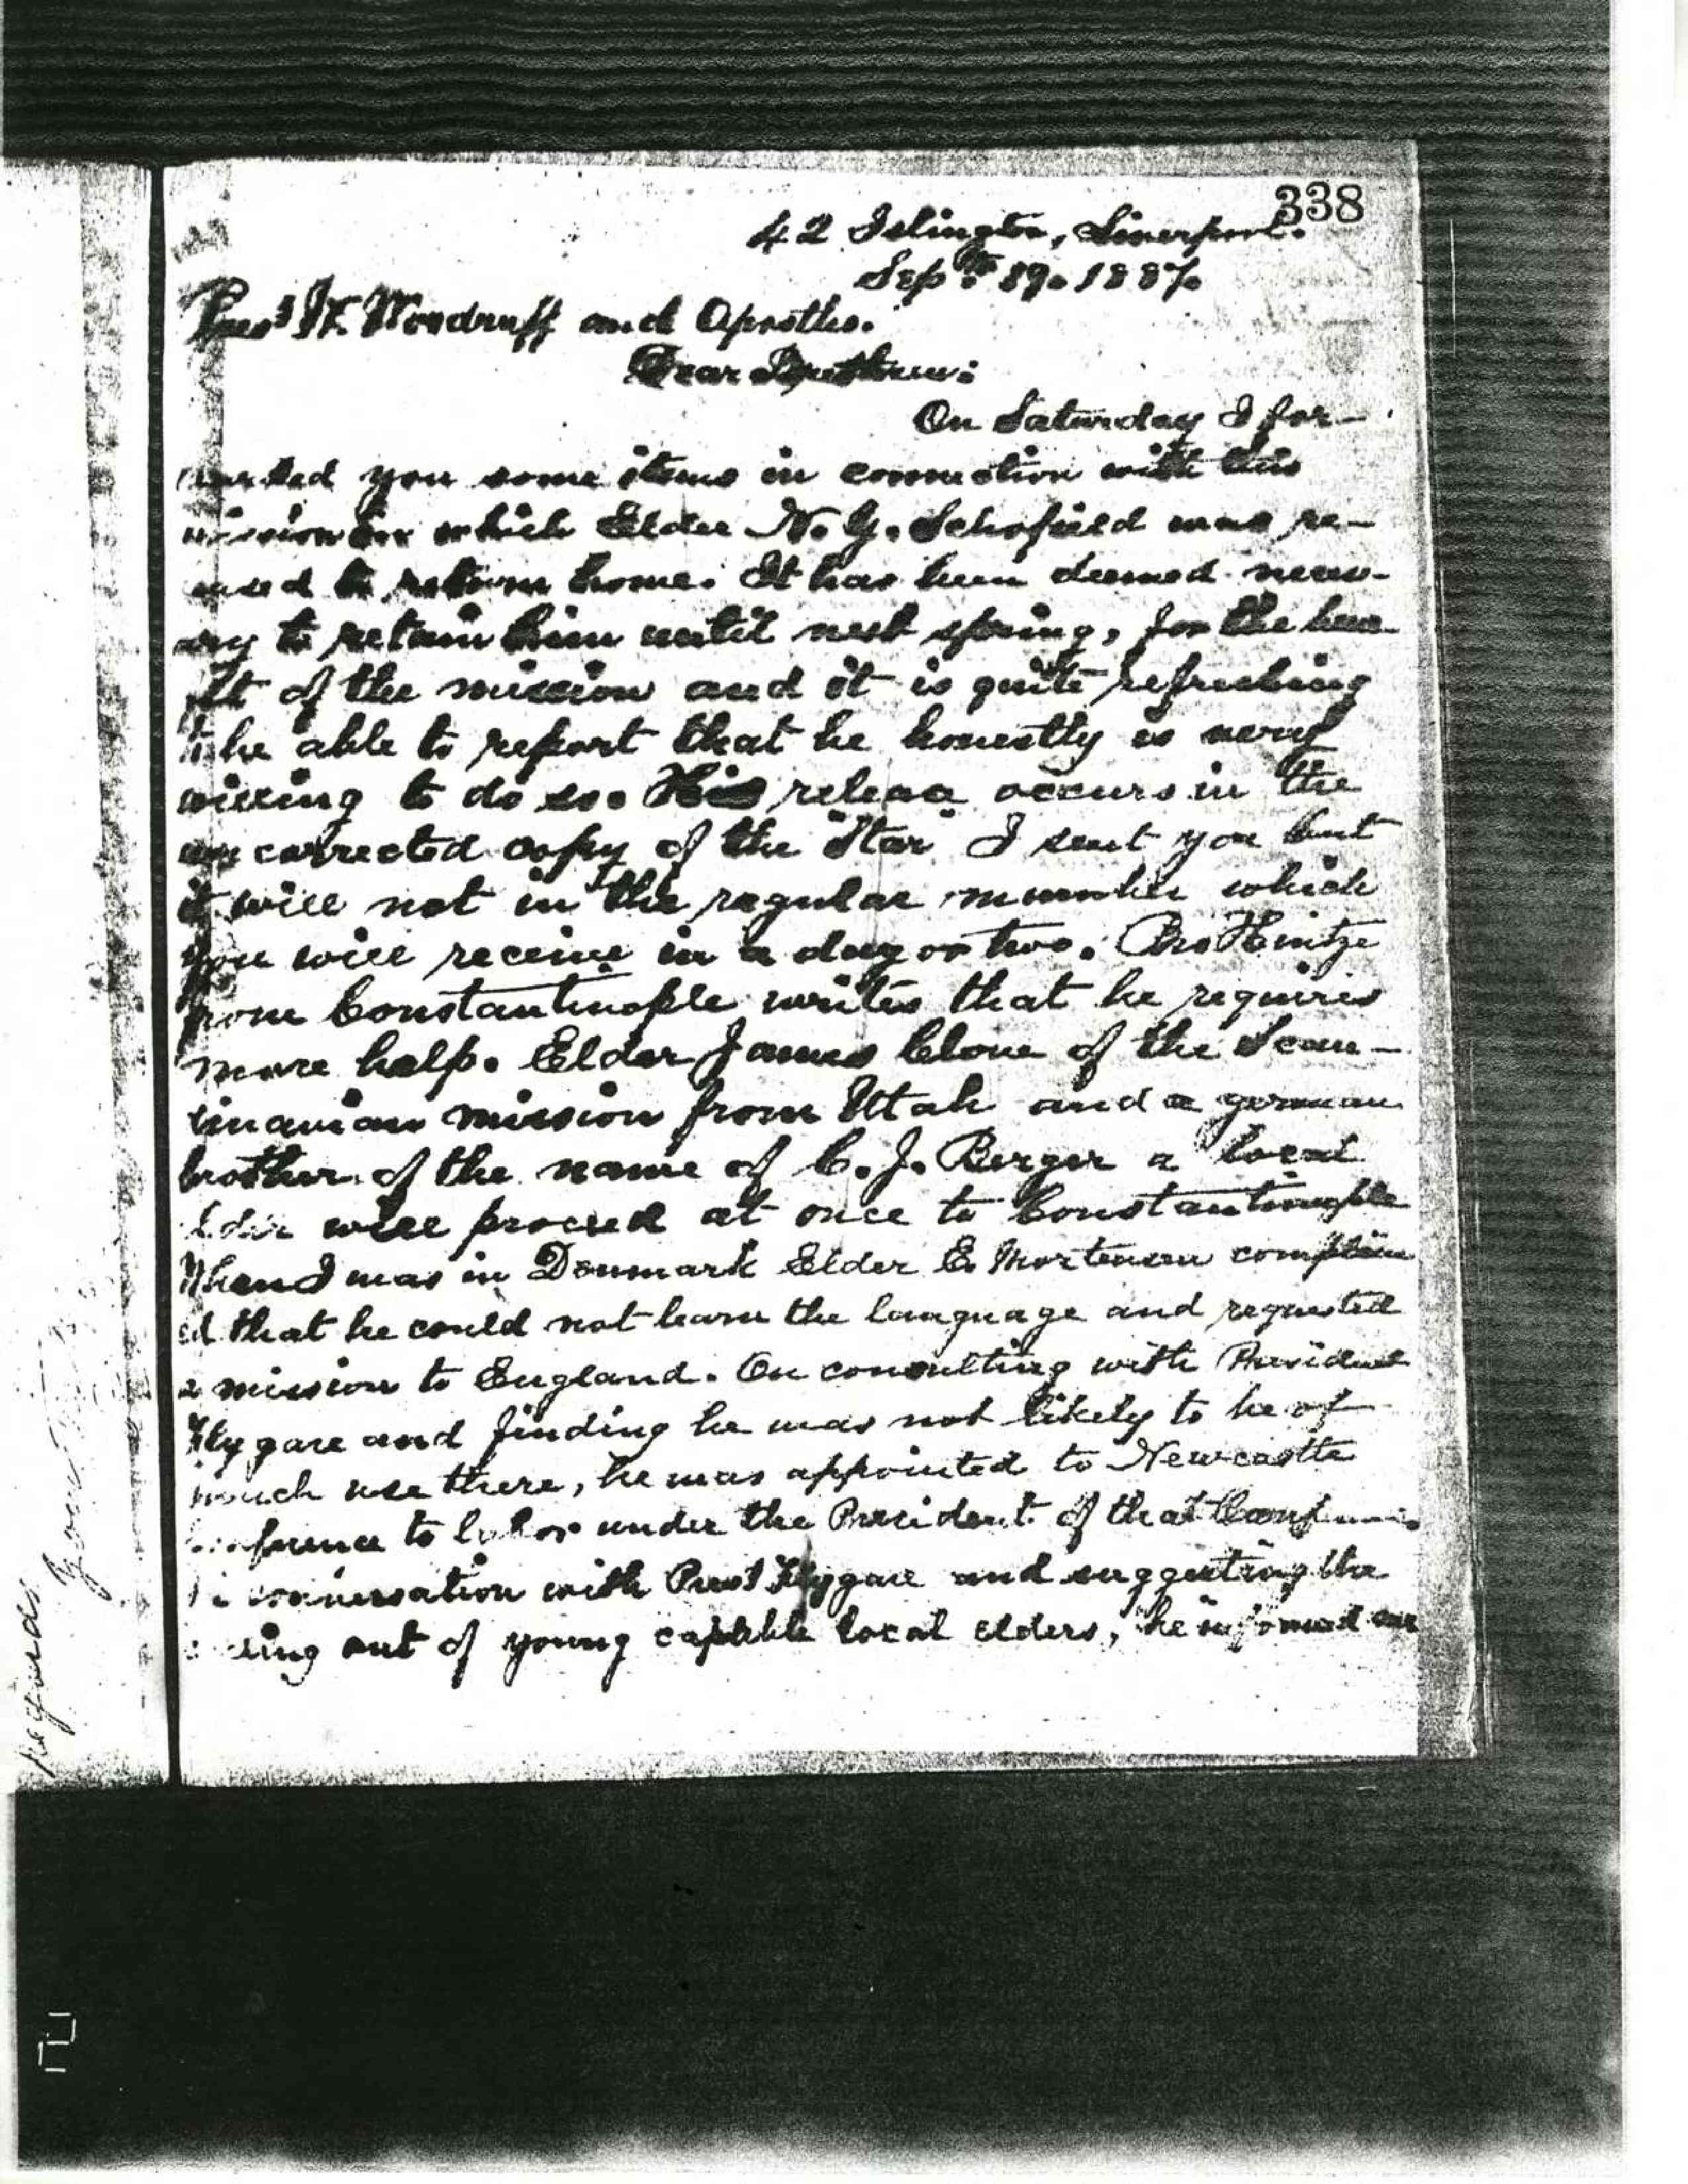 338
42 Islington, Liverpool.
Sept. 19. 1887.
Prest W. Woodruff and Apostles.
Dear Brethren:
On Saturday I for-
warded you some items in connection with this
mission in which Elder N. G. Schofield was re-
eased to return home. It has been deemed neces-
ary to retain him until next spring, for the bene-
fit of the mission and it is quite refreshing
to be able to report that he honestly is very
willing to do so. His releas occurs in the
uncorrected copy of the "Star" I sent you but
it will not in the regular number which
you will receive in a day or two. Bro Hintze
from Constantinople writes that he requires
more help. Elder James Clove of the Scan-
dinavian mission from Utah and a german
brother of the name of C. J. Berger a local
elder will proceed at once to Constantinople
When I was in Denmark Elder E. Mortensen complain
ed that he could not learn the language and requested
a mission to England. On consulting with President
Flygare and finding he was not likely to be of
much use there, he was appointed to Newcastle
Conference to labor under the President of that Conference
In conversation with Prest Flygare and suggesting the
out of young capable local elders, he informed me
regards
Your